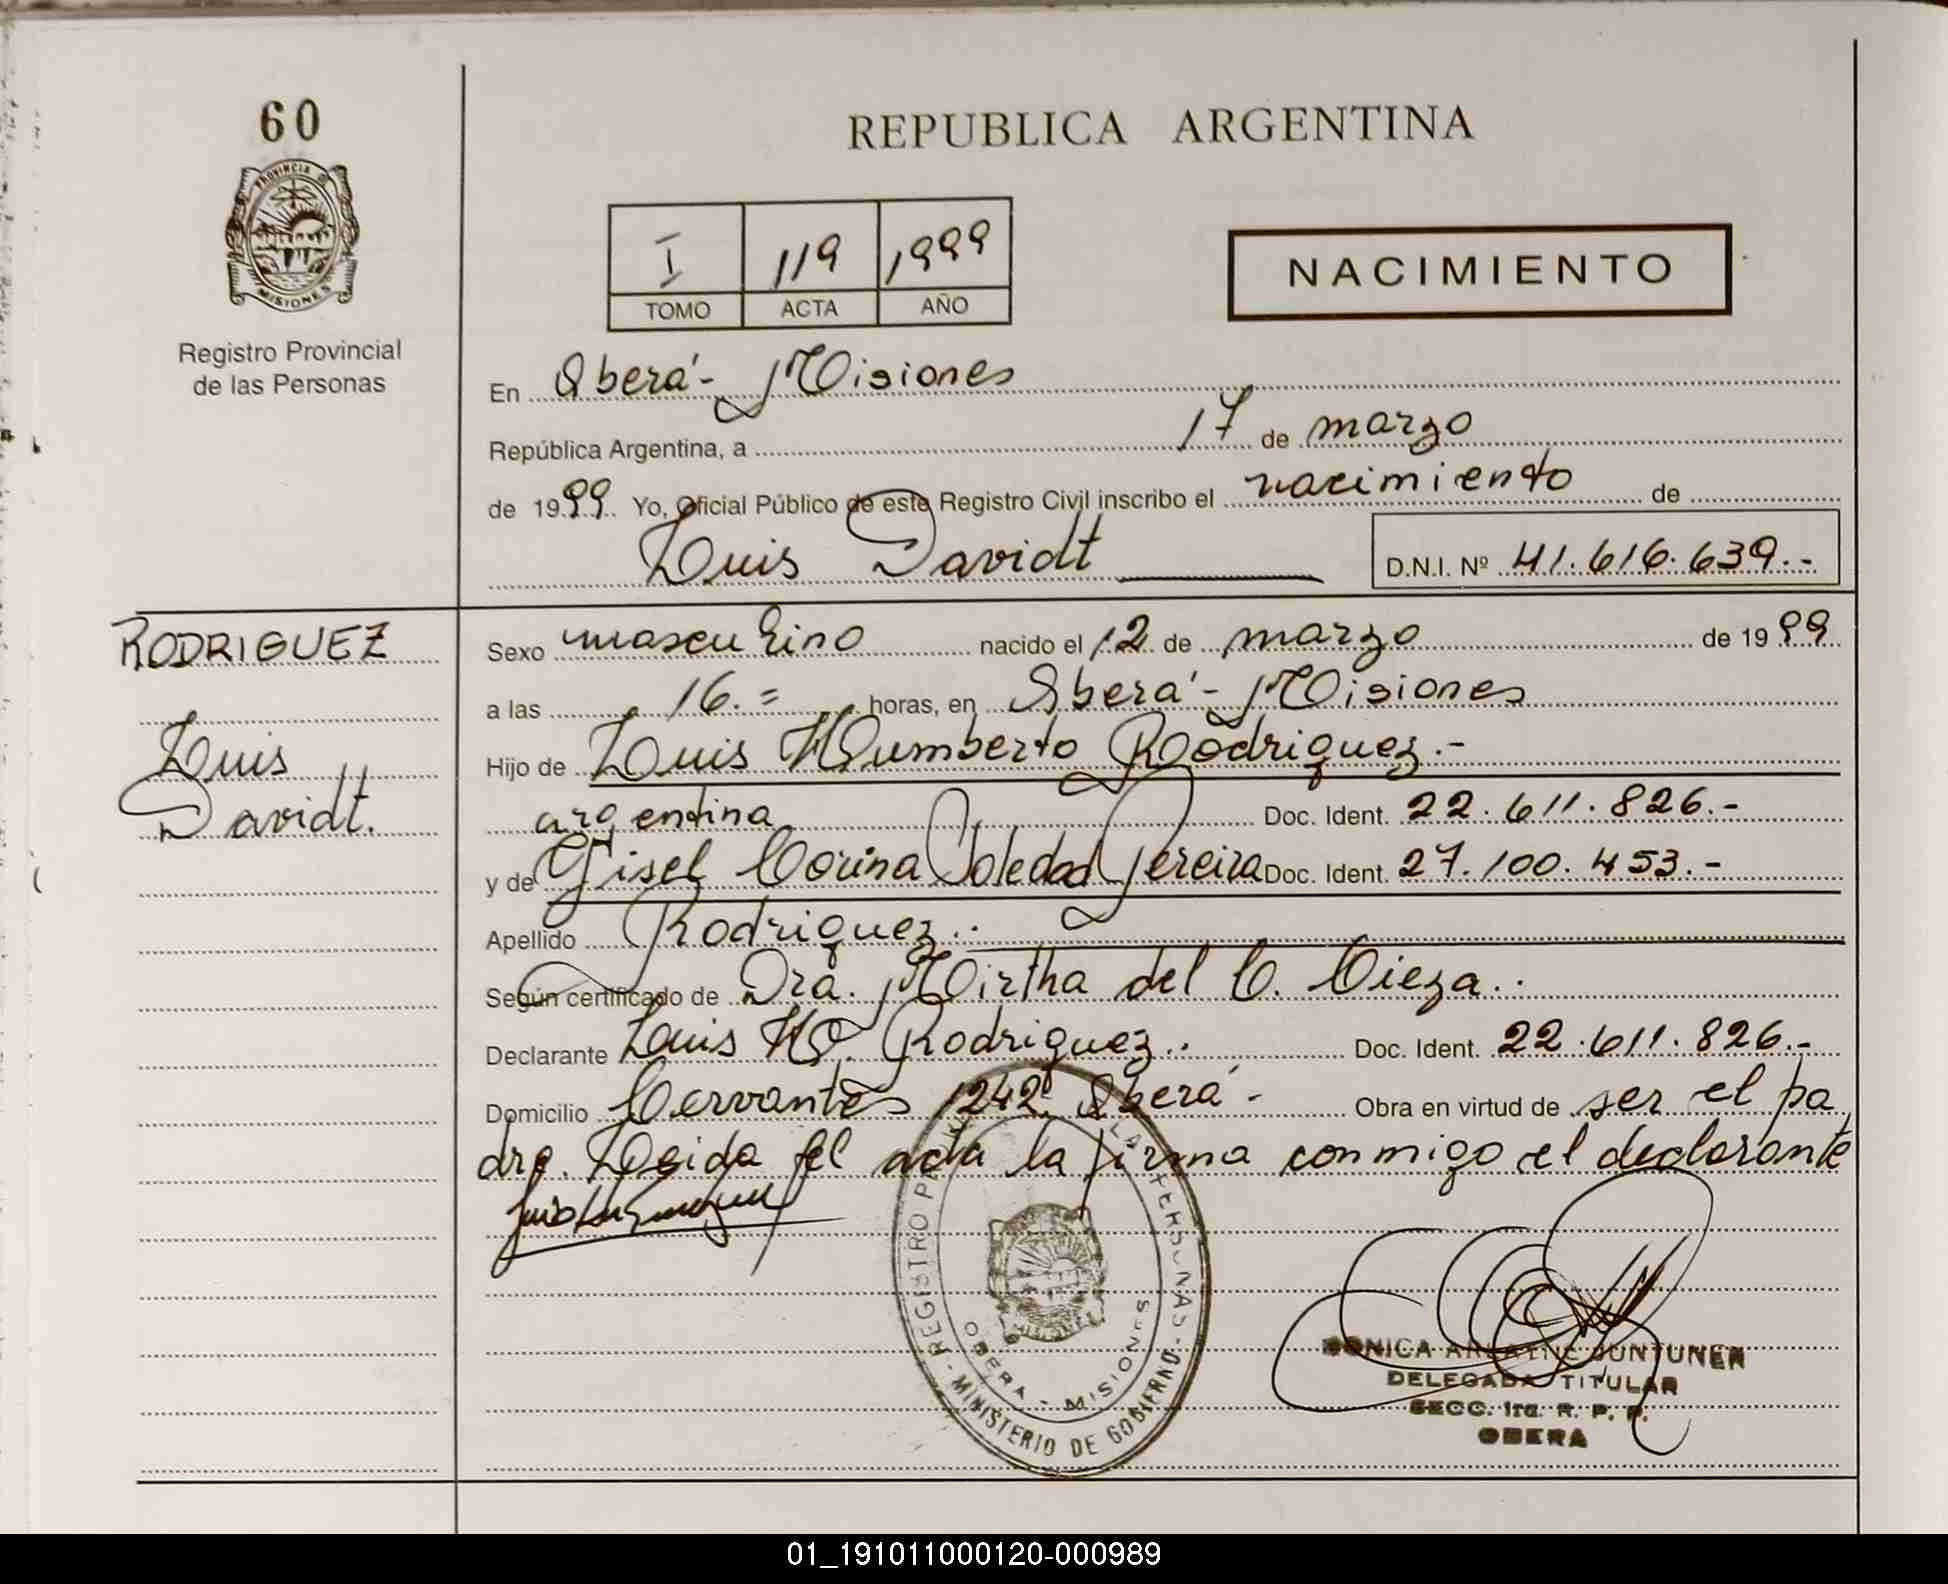 60
PROVINCIA DE
MISIONES
Registro Provincial
de las Personas
REPUBLICA ARGENTINA
I 119 1999
TOMO ACTA AÑO
NACIMIENTO
En Oberá - Misiones
República Argentina, a 17 de marzo
de 1999 Yo, Oficial Público de este Registro Civil inscribo el nacimiento de
Luis Davidt
D.N.I. Nº 41.616.639.-
RODRIGUEZ
Luis
Davidt.
Sexo masculino nacido el 12 de marzo de 1999
a las 16.= horas, en Oberá - Misiones
Hijo de Luis Humberto Rodriguez.-
argentina Doc. Ident. 22.611.826.-
y de Gisel Corina Soledad Pereira Doc. Ident. 27.100.453.-
Apellido Rodriguez..
Según certificado de Dra. Mirtha del C. Cieza..
Declarante Luis H. Rodriguez.. Doc. Ident. 22.611.826.-
Domicilio Cervantes 1242, Oberá - Obra en virtud de ser el pa
dre. Leida el acta la firma conmigo el declarante
REGISTRO LAS PERSONAS - MINISTERIO DE GOBIERNO -
MISIONES
OBERA - MISIONES
MONICA JUNTUNEN
DELEGADA TITULAR
SECC. 1ra. R. P. P.
OBERA
01_191011000120-000989